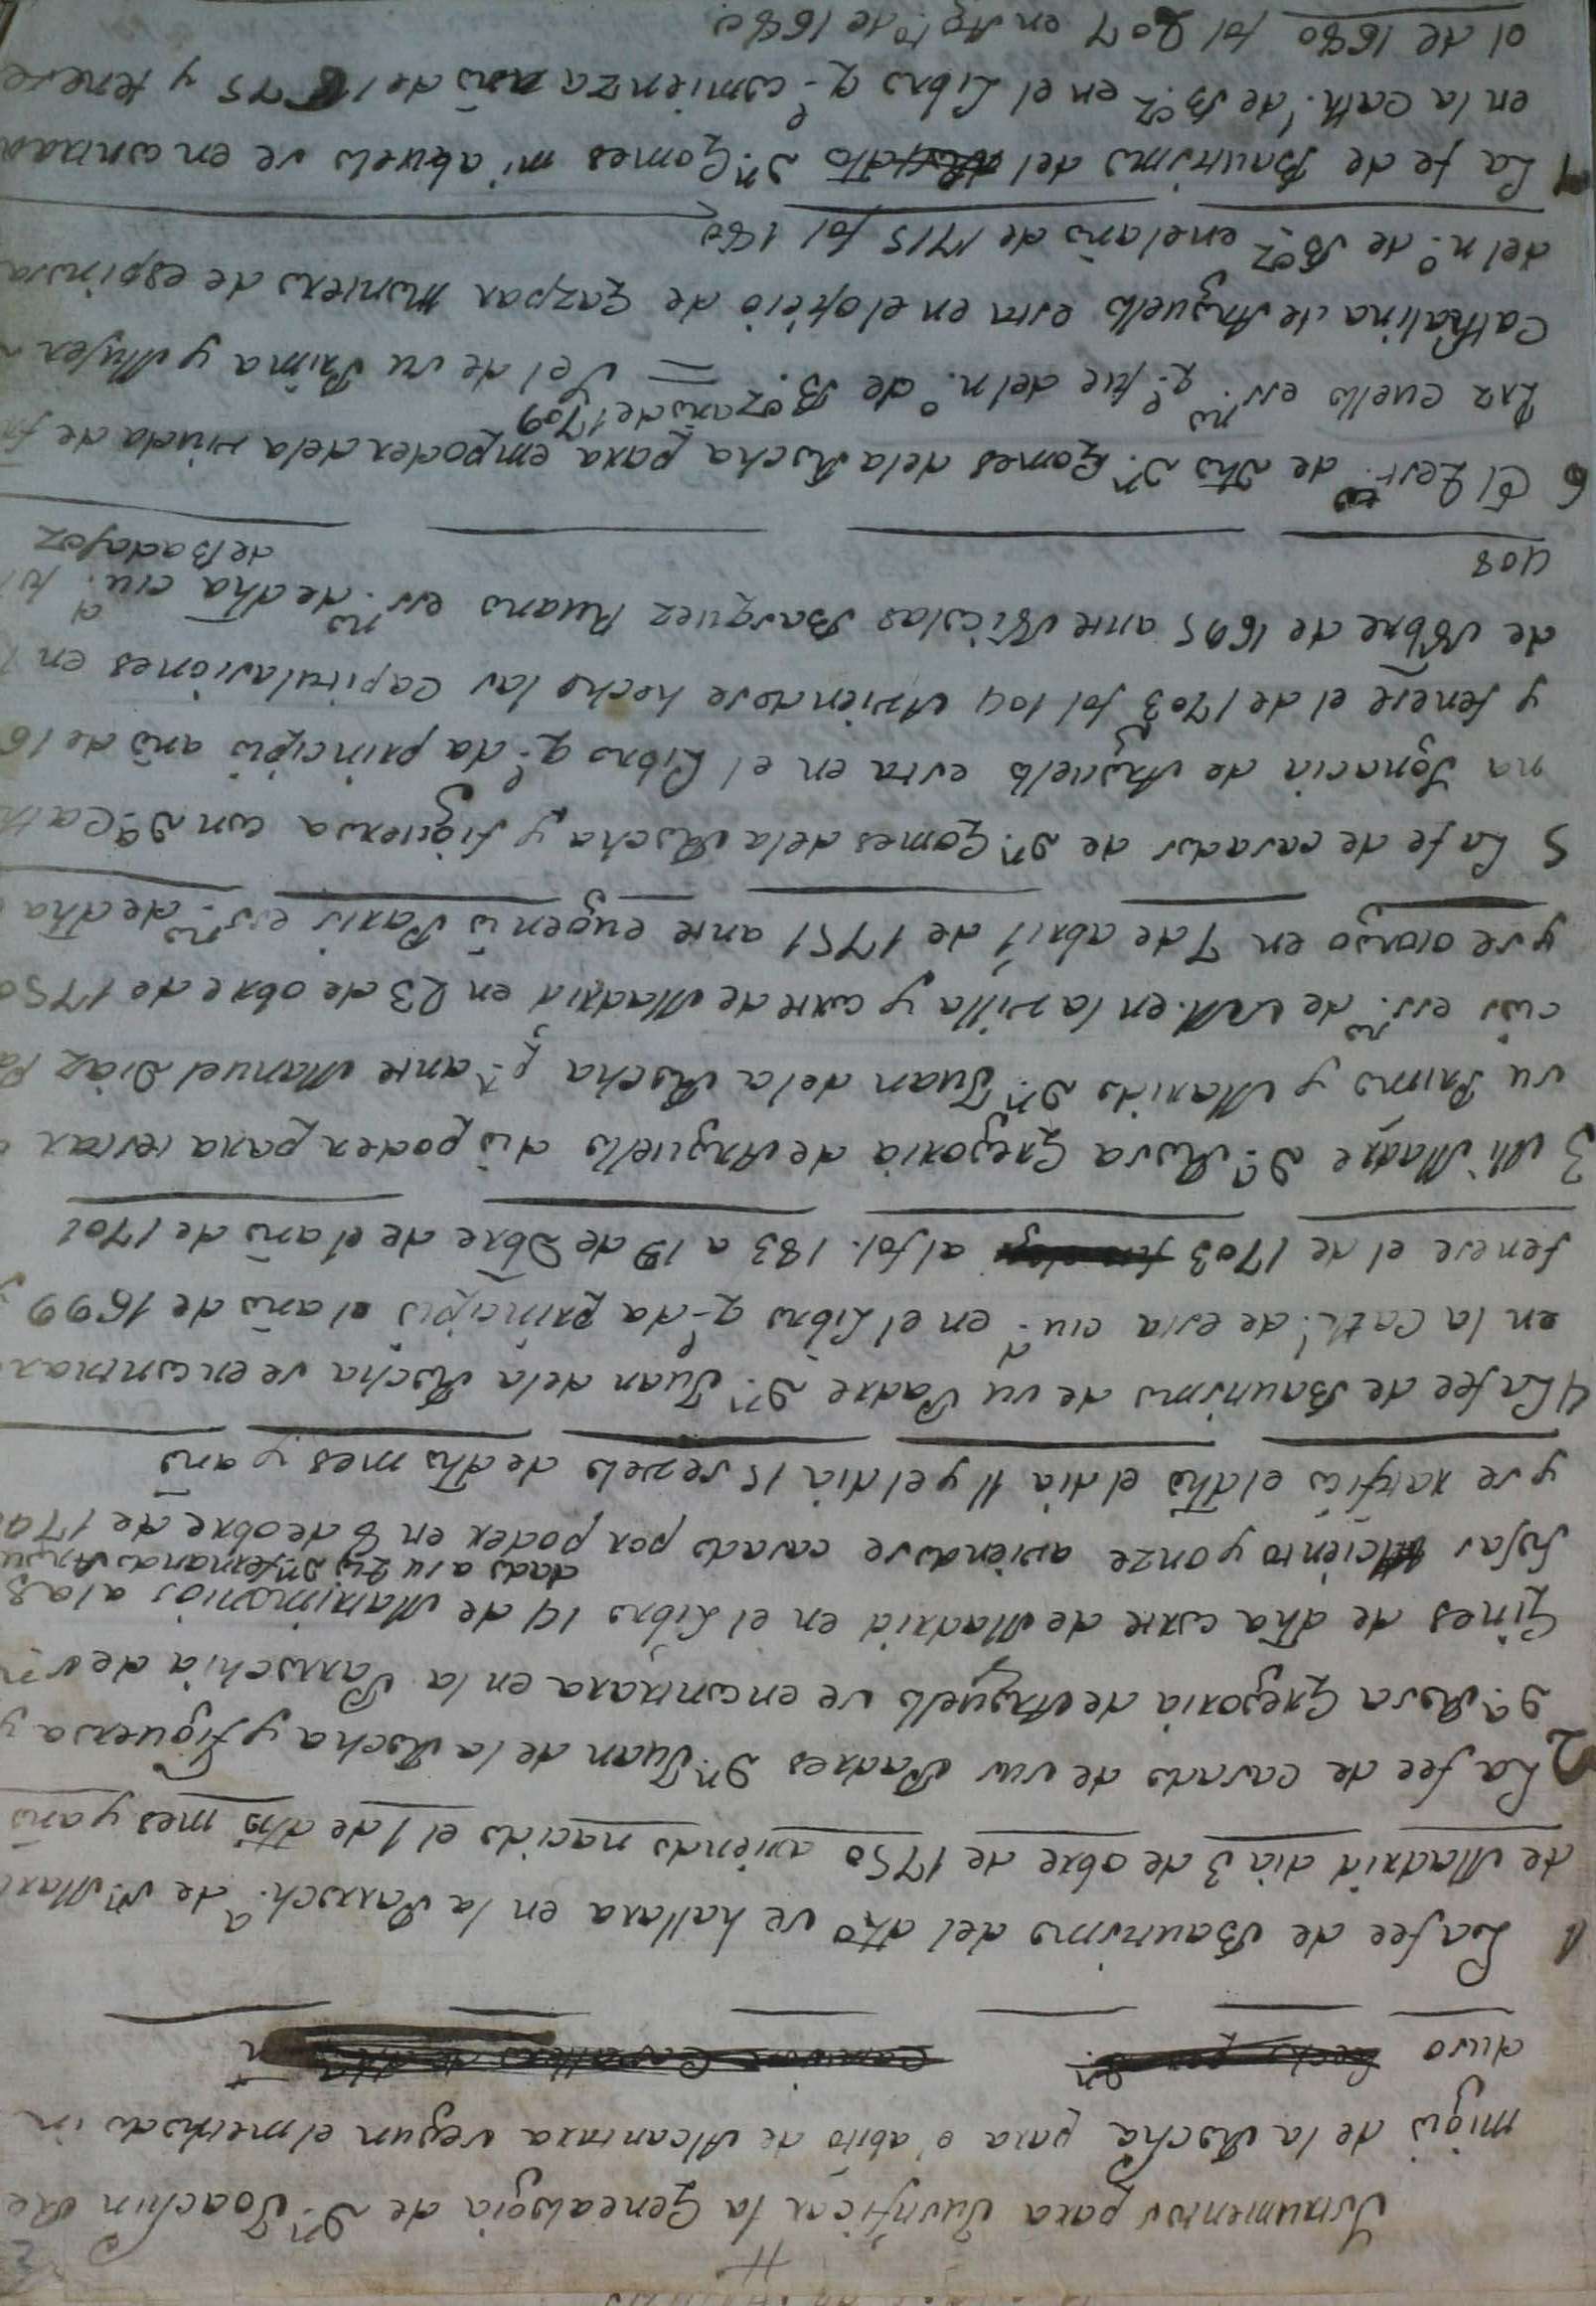 Instrumentos para Justificar la Genealogia de Dn. Joachin Re
migio de la Rocha para el abito de Alcantara segun el methodo in
cluso
1 La fee de Bautismo del dho se hallara en la Parroch.a de Sn. Marti
de Madrid dia 3 de obre de 1750 aviendo nacido el 1 de dho mes y año
2 La fee de casado de sus Padres Dn. Juan de la Rocha y figueroa y
Da. Rosa Gregoria de Arguello se encontrara en la Parrochia de Sn
Gines de dha corte de Madrid en el Libro 14 de Matrimonios a las
fojas ciento y onze aviendose casado por poder en 8 de obre de 174
dado a su tio Dn. fernando Argu
y se ratifico el dho el dia 11 y el dia 15 se velo de dho mes y año
4 La fee de Bautismo de su Padre Dn. Juan de la Rocha se encontrar
en la Cath.l de esta ciu.d en el Libro q.e da principio el año de 1699 y
fenese el de 1703 al fol. 183 a 19 de Dbre de el año de 1701
3 Mi Madre Da. Rosa Gregoria de Arguello dio poder para testar a
su Primo y Marido Dn. Juan de la Rocha p.r ante Manuel Diaz Pa
cios ess.no de S.M. en la villa y corte de Madrid en 23 de obre de 1750
y se otorgo en 7 de abril de 1751 ante eugenio Paris ess.no de dha
5 La fe de casados de Dn. Gomes de la Rocha y figueroa con Da. Cath
na Ignacia de Arguello esta en el Libro q.e da principio año de 16
y fenese el de 1703 fol 104 Aviendose hecho las Capitulasiones en
de Nobre de 1695 ante Nicolas Basquez Ruano ess.no de dha ciu.d fol
de Badajoz
408
6 El Test.to de dho Dn. Gomes de la Rocha para em poder de la viuda de fr
año de 1709
Lza cuello ess.no q.e fue del n.o de Boz. = Y el de su Prima y Mujer
Cathalina de Arguello esta en el oficio de Gazpar Montero de espinosa
del n.o de Boz en el año de 1715 fol 180
7 La fe de Bautismo del dho Dn. Gomes mi abuelo se en contrara
en la Cath.l de Boz en el Libro q.e comienza año de 1675 y fenese
el de 1680 fol 207 en Ag.to de 1680